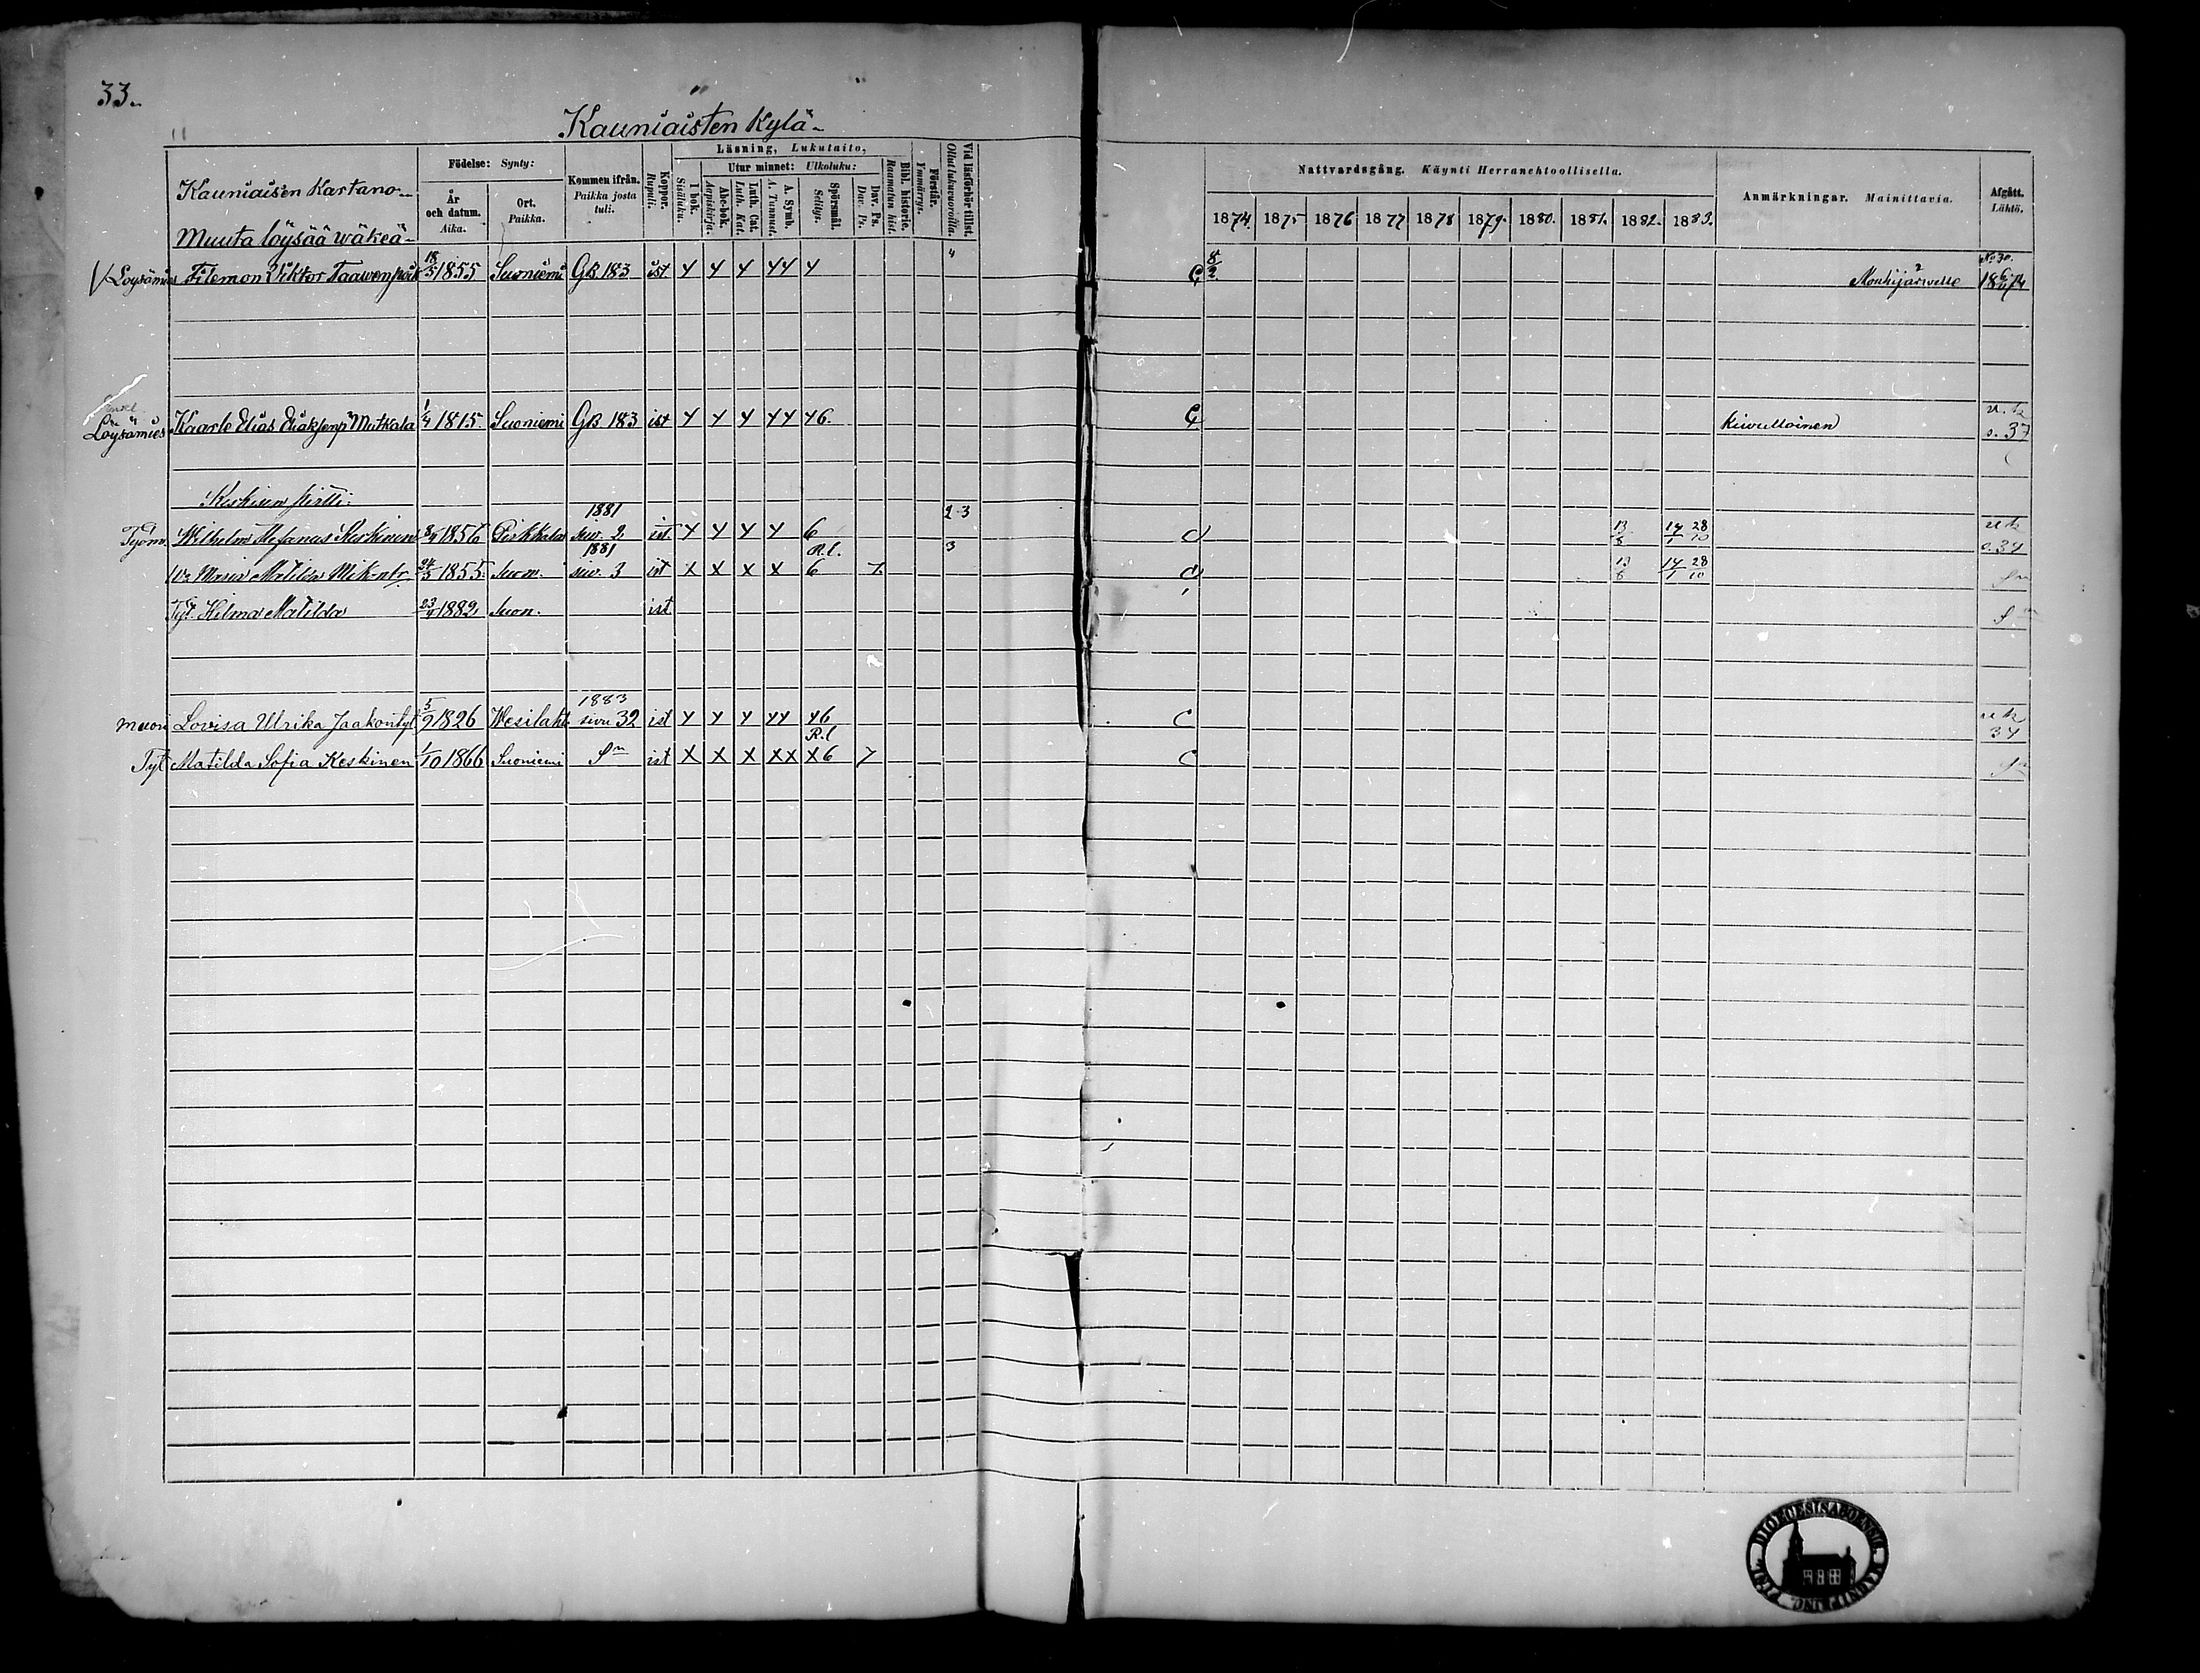 33.
Kauniaisten Kylä
Kauniaisen Kartano
Muuta löysää wäkeä
Födelse: Synty:
År och datum. Aika.
Ort. Paikka.
Kommen ifrån. Paikka josta tuli.
Koppor. Rupuli.
Läsning, Lukutaito,
I bok. Sisäluku.
Utur minnet: Ulkoluku:
Abc-bok. Aapiskirja.
Luth. Cat. Luth. Kat.
A. Symb. A. Tunnust.
Spörsmål. Selitys.
Dav. Ps. Dav. Ps.
Bibl. historie. Raamatun hist.
Förstår. Ymmärrys.
Vid läsförhör tillst. Ollut lukuvuoroilla.
Nattvardsgång. Käynti Herranehtoollisella.
1874. 1875 1876 1877 1878 1879. 1880. 1881. 1882. 1883.
Anmärkningar. Mainittavia.
Afgått. Lähtö.
Löysämies Filemon Viktor Taawenpoik 18/5 1855 Suoniemi GB 183 ist Y Y Y YY Y C 8/2 Mouhijärwelle No 30.
Löysämies Kaarle Elias Eliakjenp Mutkala 1/4 1815. Suoniemi GB 183 ist Y Y Y YY Y6. C kiwulloinen s. 37
Keskisen
Työm. Wilhelm Stefanus Keskinen 1856 Pirkkala 1881 siw. 2 ist Y Y Y Y 6 2-3 13/8 14/1 28/10
Maria Matilda Mik. 24/3 1855. Suon. 1881 siw. 3 ist X X X X R.l. 6 7. 3 13/8 14/1 28/10
Tyt. Hilma Matilda 23/9 1882 Suon. ist
muori Lovisa Ulrika Jaakontyt 5/9 1826 Wesilahti 1883 sivu 32 ist Y Y Y YY Y6 C 34
Tyt Matilda Sofia Keskinen 1/10 1866 Suoniemi Sm ist X X X XX R.l X6 7 C